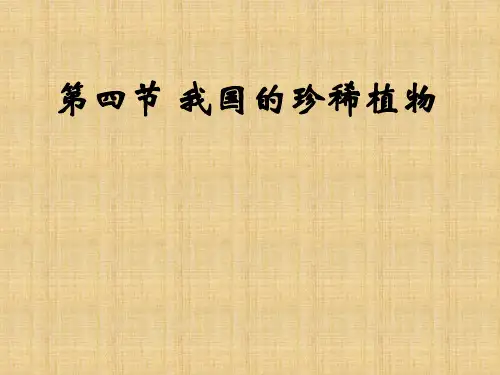 第四节 我国的珍稀植物